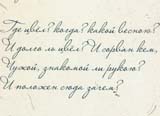 Где цвёл? когда? какой весною?
И долго ль цвёл? И сорван кем,
Чужой, знакомой ли рукою?
И положен сюда зачем?